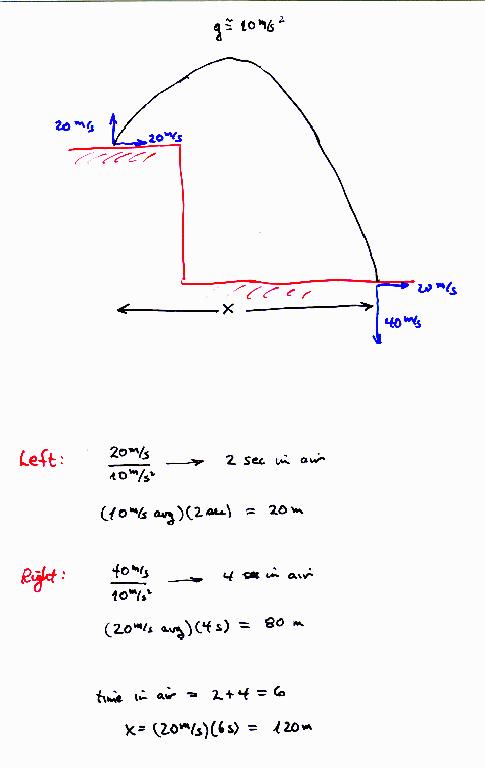 g ≅ 10 m/s²
20 m/s
20 m/s
20 m/s
x
40 m/s
Left: 20 m/s / 10 m/s² → 2 sec in air
(10 m/s avg)(2 sec) = 20 m
Right: 40 m/s / 10 m/s² → 4 in air
(20 m/s avg)(4 s) = 80 m
time in air = 2+4 = 6
x = (20 m/s)(6s) = 120 m